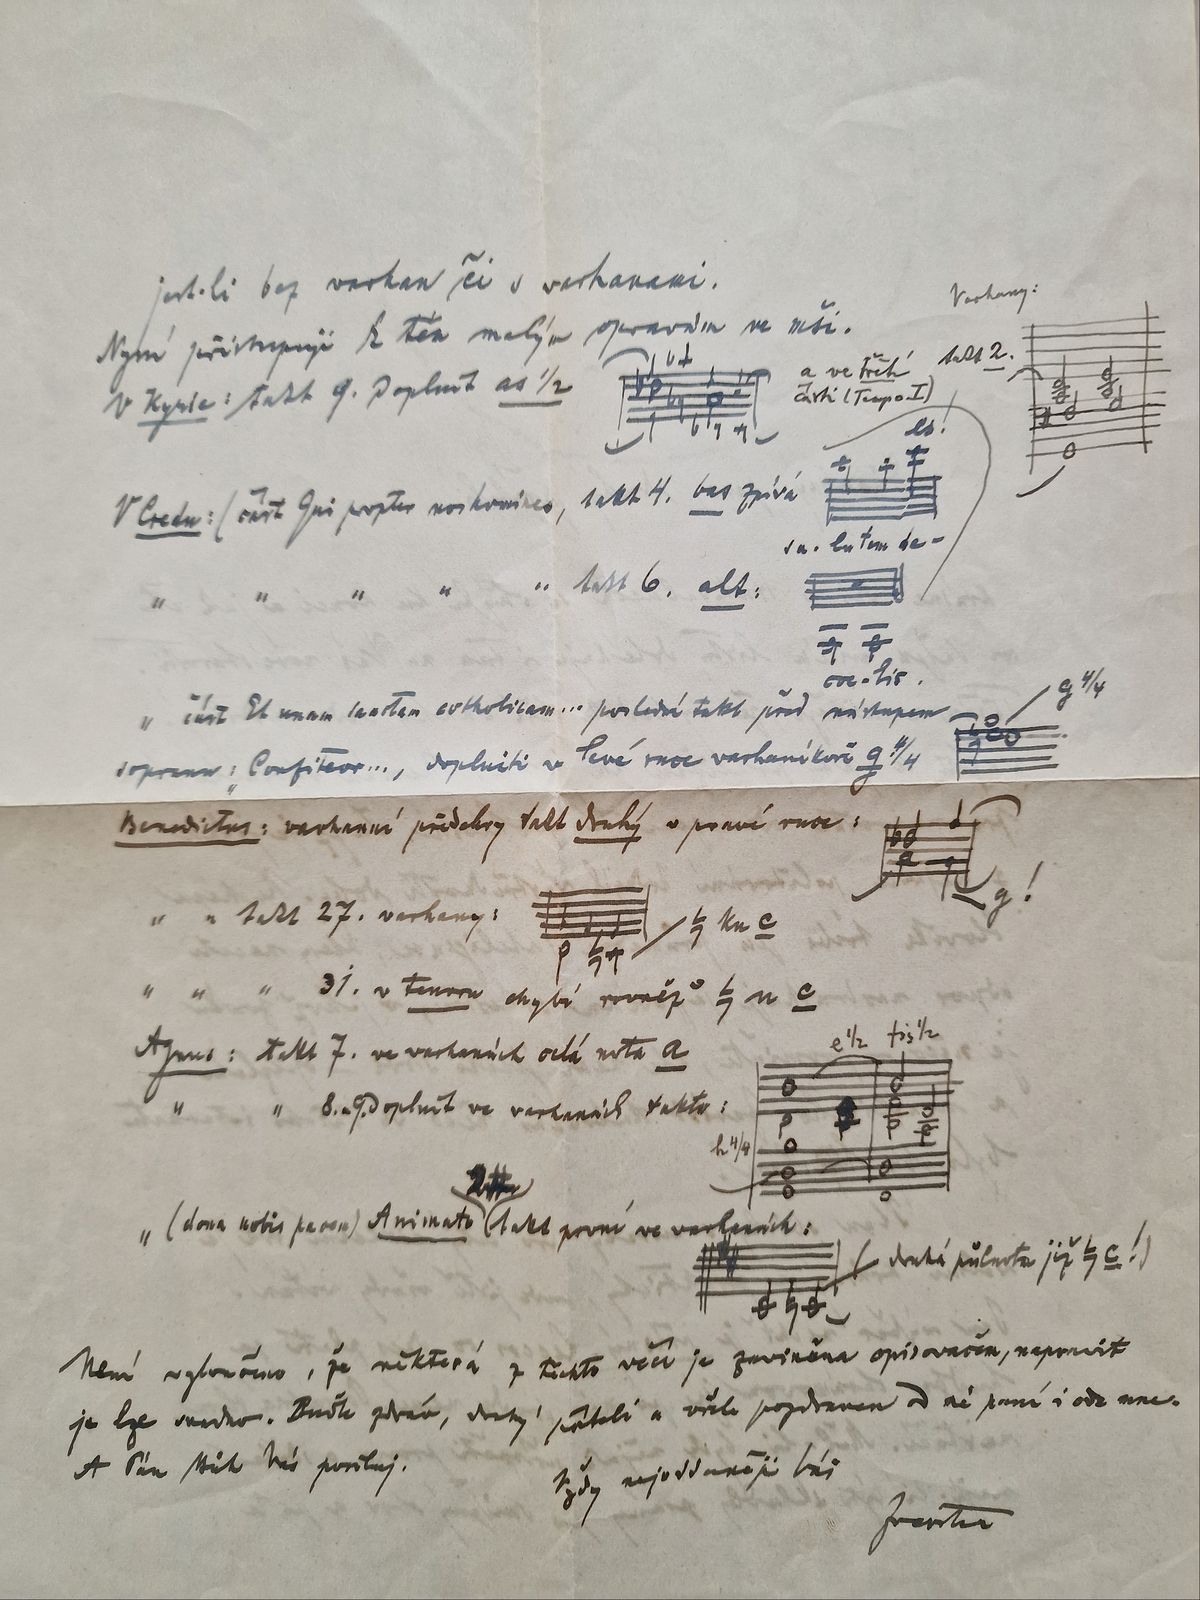 jest-li bez varhan či s varhanami.
Nyní přistupuji k těm malým opravám ve mši.
V Kyrie: takt 9. Doplnit as 1/2
a ve třetí
části (Tempo I)
takt 2.
Varhany:
V Credu: (část Qui propter nos homines, takt 4. bas zpívá
es!
sa-lutem de-
" " " " " takt 6. alt:
coe-lis.
" část Et unam sanctam catholicam... poslední takt před nástupem
sopranu: "Confiteor..., doplniti v levé ruce varhaníkově g 4/4
g 4/4
Benedictus: varhanní předehry takt druhý v pravé ruce:
g!
" " takt 27. varhany:
♮ ku c
" " " 31. v tenoru chybí rovněž ♮ u c
Agnus: takt 7. ve varhanách celá nota a
" " 8. a 9. Doplnit ve varhanách takto:
e 1/2 fis 1/2
h 4/4
2#
" (dona nobis pacem) Animato (takt první ve varhanách:
druhá půlnota již ♮ c!)
Není vyloučeno, že některá z těchto věcí je zaviněna opisovačem, napravit
je lze snadno. Buďte zdráv, drahý příteli a vřele pozdraven od mé paní i ode mne.
A Pán Bůh Vás posiluj.
Vždy nejoddanější Váš